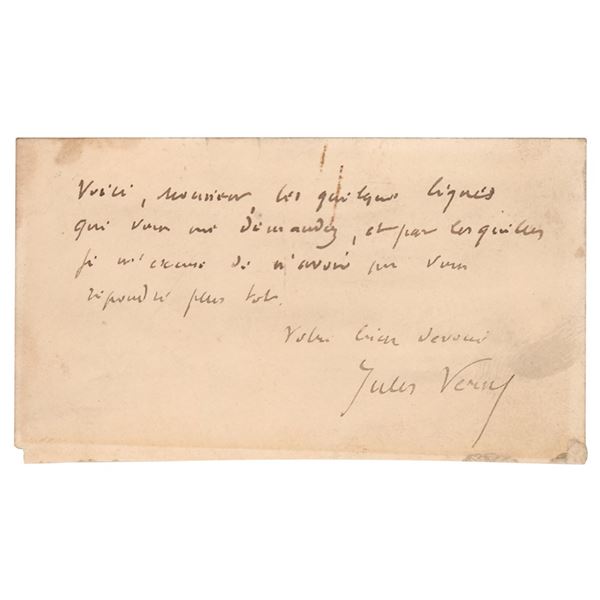 Voici, monsieur, les quelques lignes
que vous me demandez, et par lesquelles
je m'excuse de n'avoir pu vous
répondre plus tôt.
Votre bien dévoué
Jules Verne